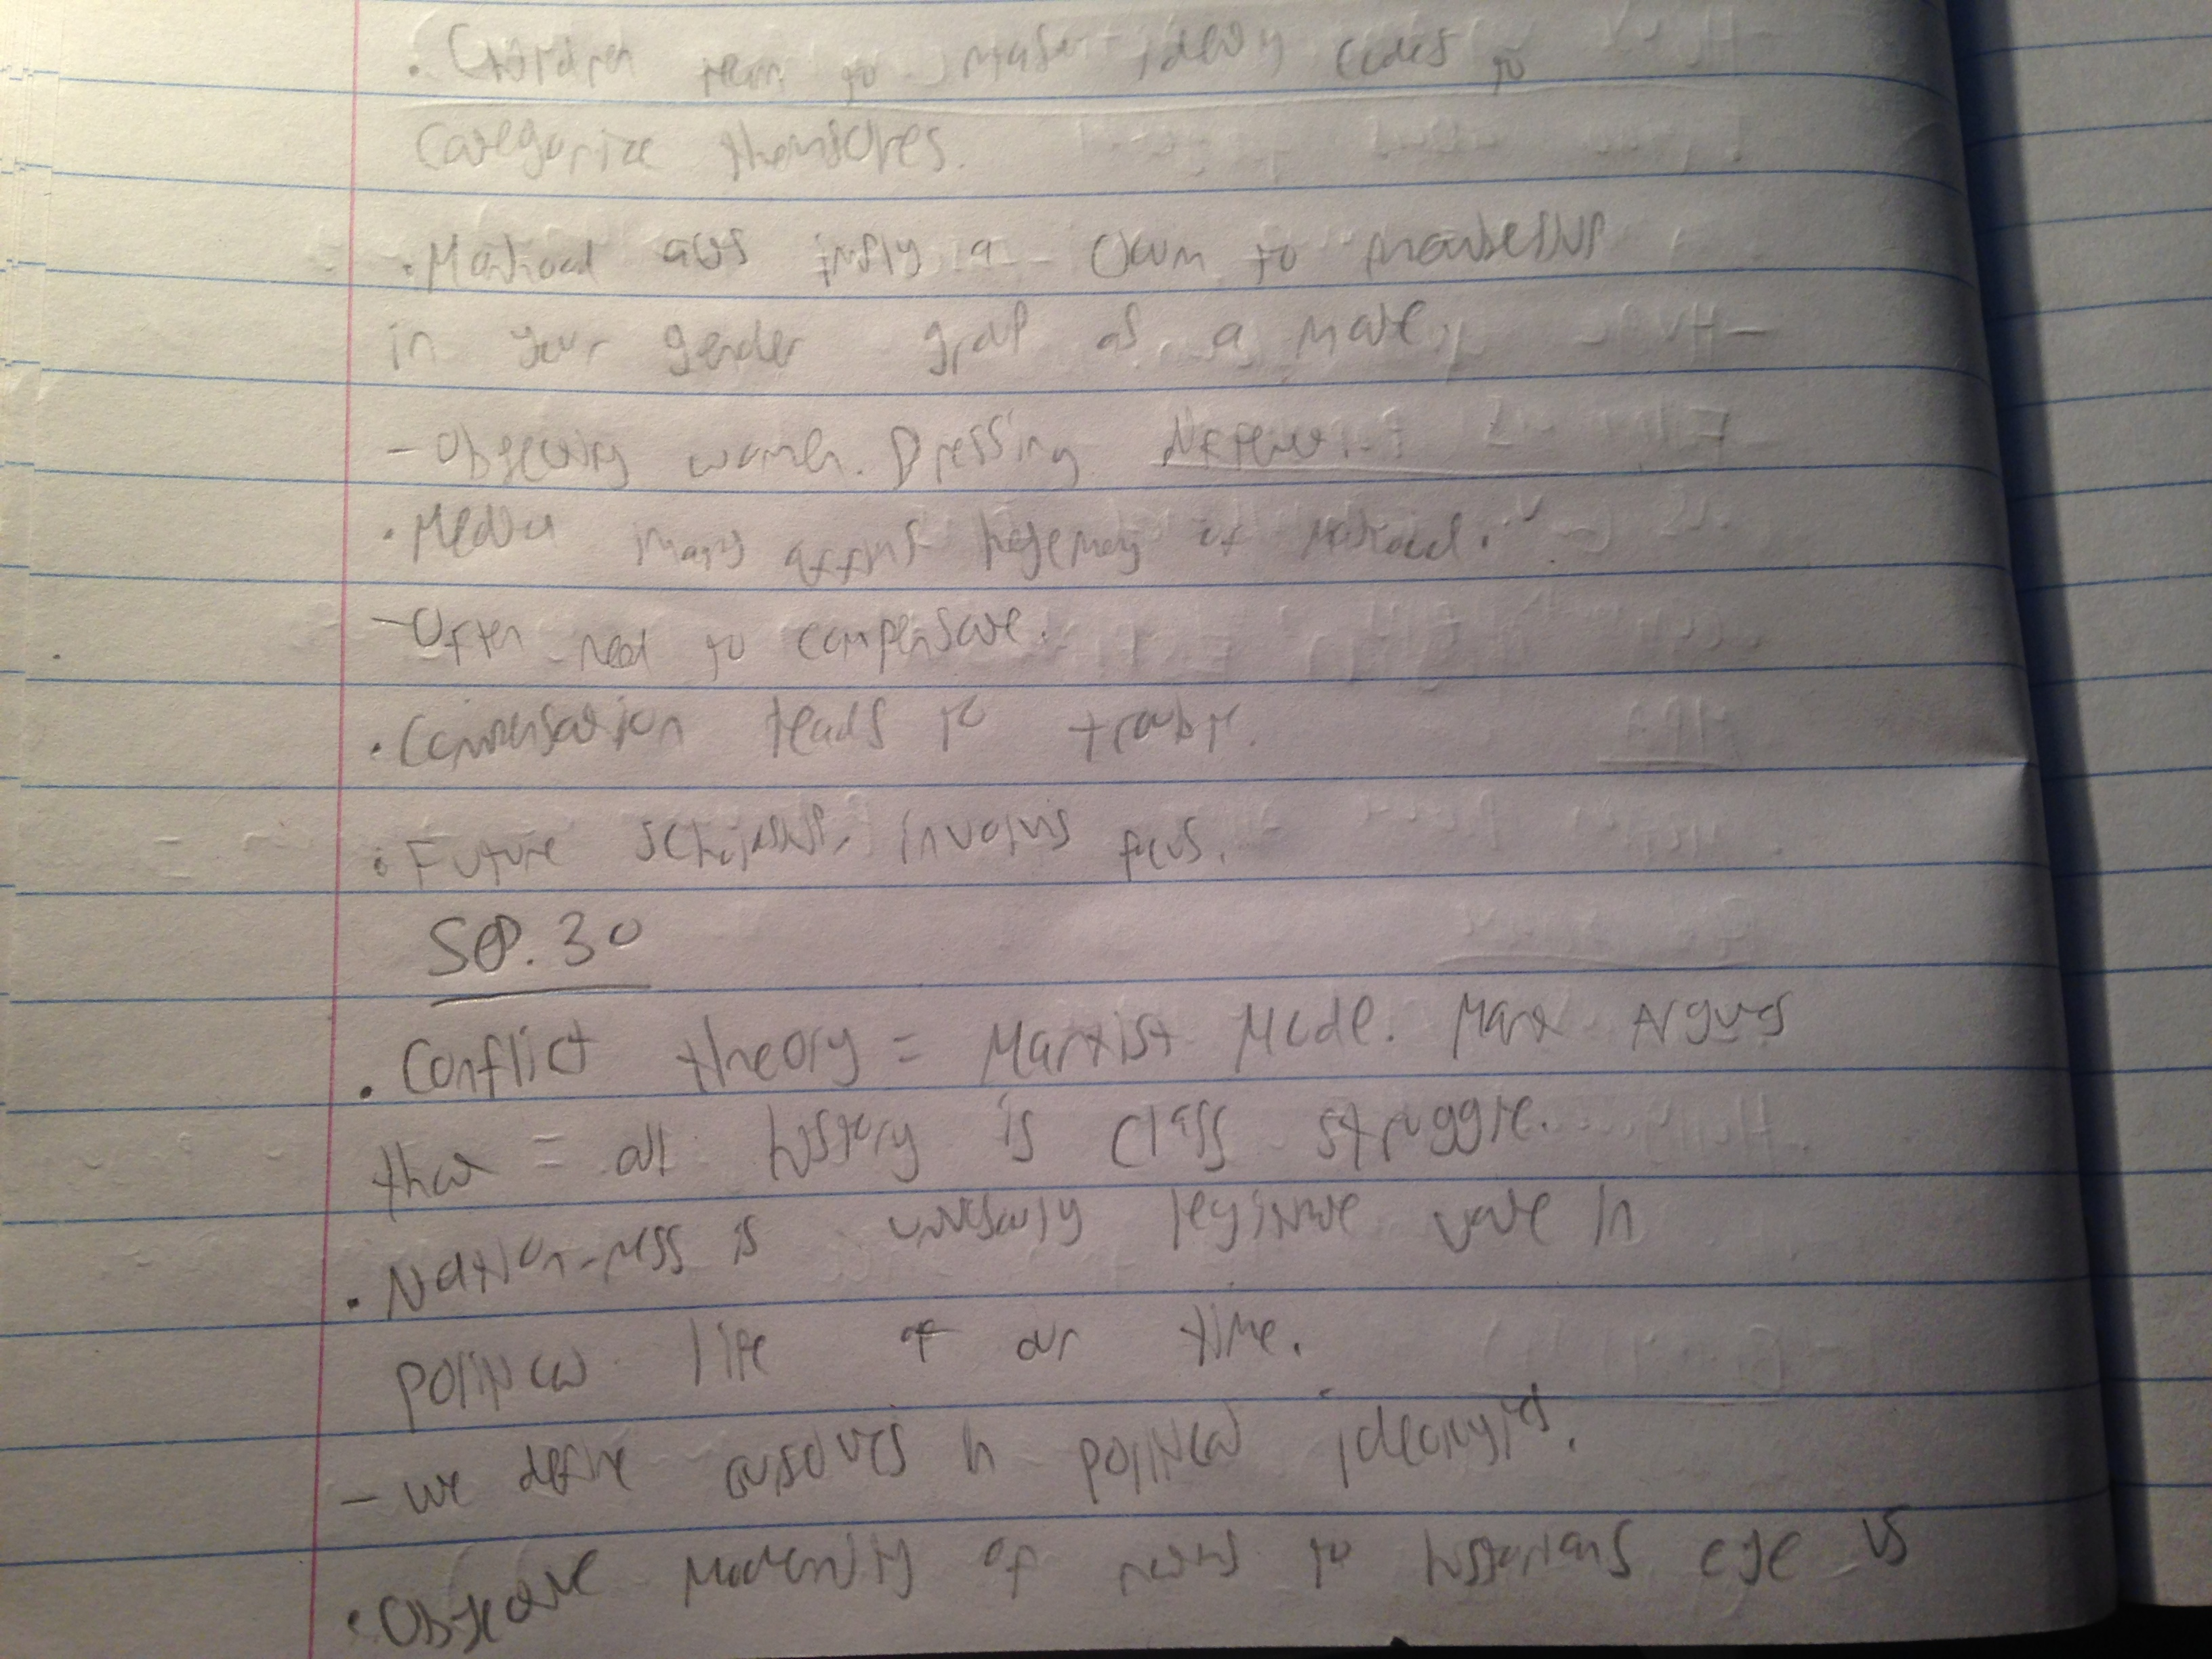 · Children learn to master identity codes to
categorize themselves.
· Manhood acts imply a claim to membership
in your gender group as a male.
- Objectifying women. Dressing different.
· Media images affirms hegemony of manhood.
- Often need to compensate.
· Compensation leads to trouble.
· Future scholarship involves focus.
Sep. 30
· Conflict theory = Marxist Model. Marx Argues
that = all history is class struggle.
· Nation-ness is universally legitimate value in
political life of our time.
- we define ourselves in political ideologies.
· Objective modernity of nations to historians eye vs